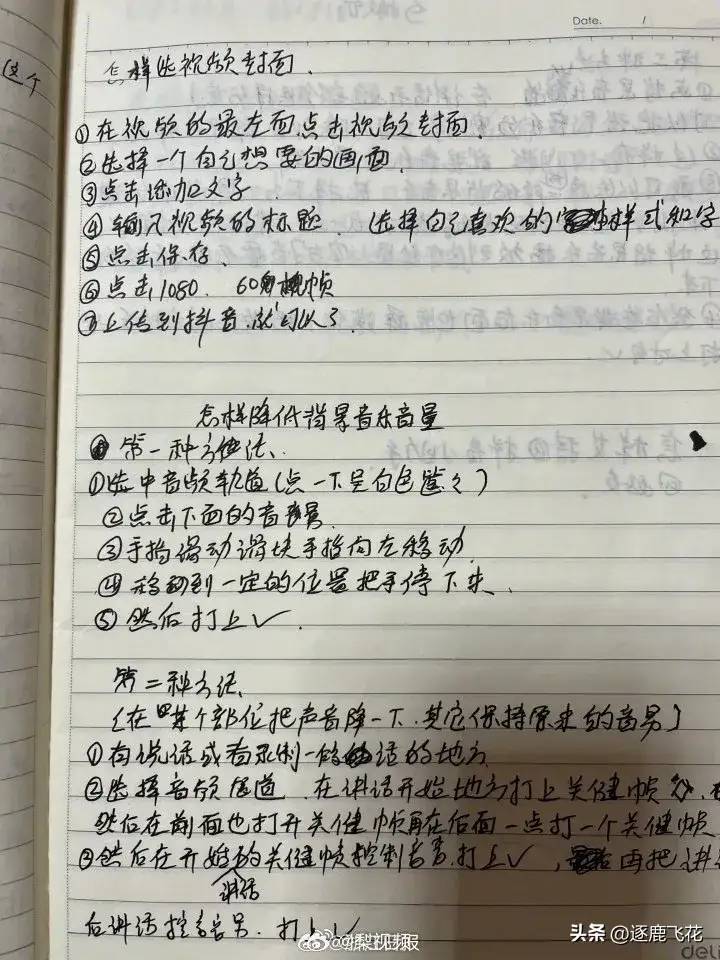 Date. /
这个
怎样选视频封面.
①在视频的最左面点击视频封面.
②选择一个自己想要的画面.
③点击添加文字.
④输入视频的标题. 选择自己喜欢的字体样式和字
⑤点击保存.
⑥点击1080. 60帧
⑦上传到抖音.就可以了.
怎样降低背景音乐音量
第一种方法、
①选中音频轨道(点一下呈白色
②点击下面的音量.
③手指滑动滑块手指向左移动.
④移动到一定的位置把手停下来、
⑤然后打上✓.
第二种方法、
(在某个部位把声音降一下.其它保持原来的音量)
①有说话或有录制 话的地方
②选择音频轨道. 在讲话开始地方打上关健帧
然后在前面也打开关健帧再在后面一点打一个关健帧
③然后在开始的关健帧控制音量.打上✓, 再把讲
讲话
后讲话控音量. 打上✓
@梨视频
头条 @逐鹿飞花
deli